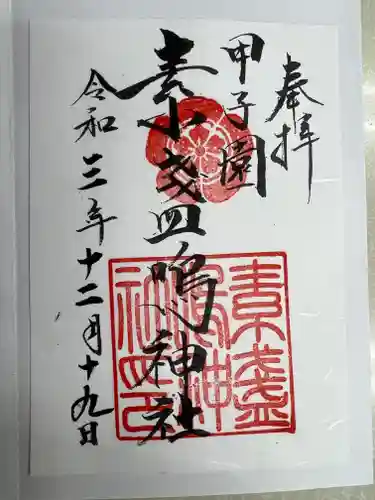 奉拝
甲子園
素盞嗚神社
令和三年十二月十九日
素盞
嗚神
社印